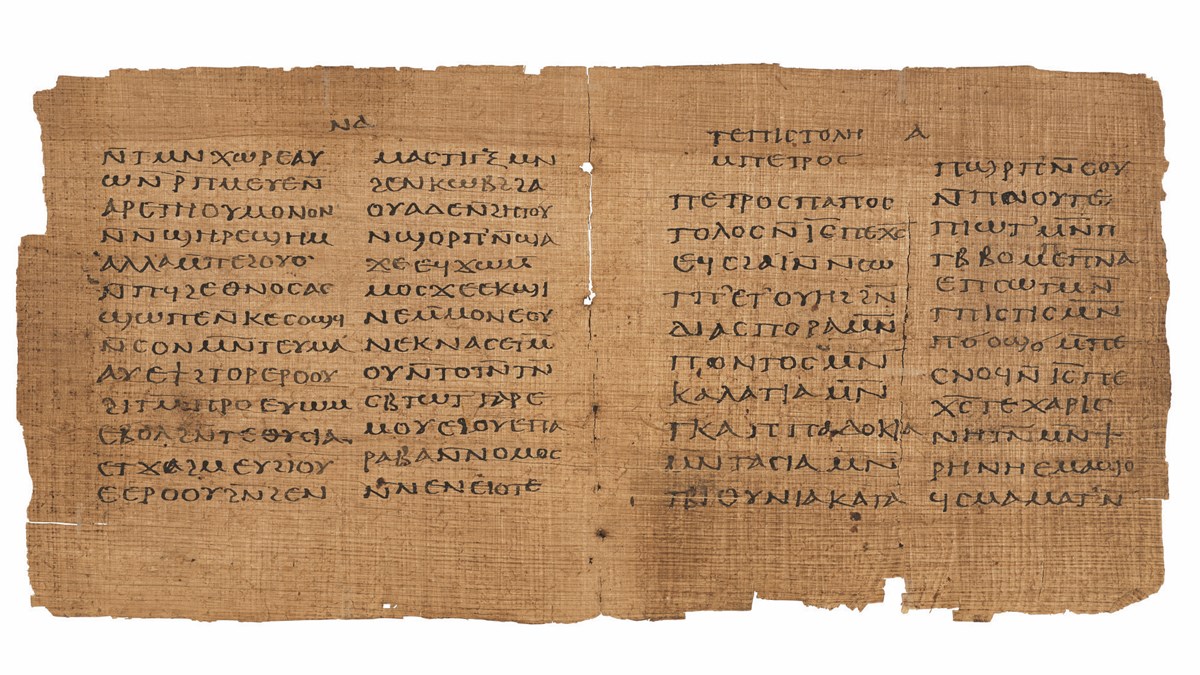 ⲛⲁ
ⲛ̅ⲧⲙⲛⲭⲱⲣⲉⲁⲩ
ⲱⲛⲣ̅ⲡⲙⲉⲩⲉⲛ
ⲁⲣⲉⲧⲏⲟⲩⲙⲟⲛⲟⲛ
ⲛ̅ⲛϣⲏⲣⲉϣⲏⲙ
ⲁⲗⲗⲁⲙ̅ⲡⲉϩⲟⲩⲟ
ⲛ̅ⲡϥϩⲉⲑⲛⲟⲥⲁⲥ
ϣⲱⲡⲉⲛⲕⲉⲥⲟϣϥ
ⲛ̅ⲥⲟⲛⲙⲛ̅ⲧⲉⲩⲙⲁ
ⲁⲩⲉϯϩⲧⲟⲣⲉⲣⲟⲟⲩ
ϩⲓⲧⲙ̅ⲡⲣⲟⲉⲩⲱⲙ
ⲉⲃⲟⲗϩⲛ̅ⲧⲉⲑⲩⲥⲓⲁ
ⲉⲧϫⲁϩⲙⲉⲩϩⲓⲟⲩ
ⲉⲉⲣⲟⲟⲩϩⲛ̅ϩⲉⲛ
ⲙⲁⲥⲧⲓⲅⲝ̅ⲙⲛ
ϩⲉⲛⲕⲱⲃϩϩⲁ
ⲟⲩⲁⲇⲉⲛ̅ϩⲏⲧⲟⲩ
ⲛϣⲟⲣⲡ'ⲛ̅ϣⲁ
ϫⲉⲉϥϫⲱⲙ̅
ⲙⲟⲥϫⲉⲉⲕϣⲓ
ⲛⲉⲙ̅ⲙⲟⲛⲉⲟⲩ
ⲛⲉⲕⲛⲁⲥⲉⲧⲙ̅
ⲟⲩⲛ̅ⲧⲟⲧⲛ̅ⲧⲛ
ⲥⲃⲧⲱⲧ'ⲅⲁⲣⲉ
ⲙⲟⲩⲉϩⲟⲩⲉⲡⲁ
ⲣⲁⲃⲁⲛ̅ⲛⲟⲙⲟⲥ
ⲛ̅ⲛⲉⲛⲉⲓⲟⲧⲉ
ⲧⲉⲡⲓⲥⲧⲟⲗⲏ ⲁ
ⲙⲡⲉⲧⲣⲟⲥ
ⲡⲉⲧⲣⲟⲥⲡⲁⲡⲟⲥ
ⲧⲟⲗⲟⲥⲛ̅ⲓ̅ⲥ̅ⲡⲉⲭ̅ⲥ̅
ⲉϥⲥϩⲁⲓⲛ̅ⲛⲥⲱ
ⲧⲡ'ⲉⲧ'ⲟⲩⲏϩϩⲛ̅
ⲇⲓⲁⲥⲡⲟⲣⲁⲙⲛ̅
ⲡⲡⲟⲛⲧⲟⲥⲙⲛ
ⲕⲁⲗⲁⲧⲓⲁⲙⲛ̅
ⲧⲕⲁⲡⲡⲁⲇⲟⲕⲓⲁ
ⲙⲛⲧⲁⲥⲓⲁⲙⲛ̅
ⲧⲃⲓⲑⲩⲛⲓⲁⲕⲁⲧⲁ
ⲡϣⲣⲡ'ⲛ̅ⲥⲟⲩ
ⲛ̅ⲡⲛⲟⲩⲧⲉ
ⲡⲓⲱⲧ'ⲙⲛ̅ⲡ
ⲧⲃⲃⲟⲙⲉⲡⲛ̅ⲁ̅
ⲉⲡⲥⲱⲧⲙⲛ̅
ⲧⲡⲓⲥⲧⲓⲥⲙⲛ̅
ⲡϭⲟϣϭϣ̅ⲙ̅ⲡⲉ
ⲥⲛⲟϥⲛ̅ⲓ̅ⲥ̅ⲡⲉ
ⲭ̅ⲥ̅ⲧⲉⲭⲁⲣⲓⲥ
ⲛⲏⲧⲛ̅ⲙⲛ̅ϯ
ⲣⲏⲛⲏⲉⲙⲁϣⲟ
ϥⲥⲙⲁⲙⲁⲧ'ⲛ